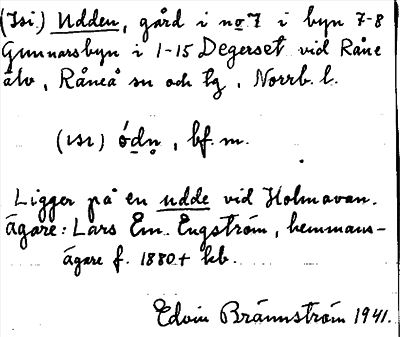 (Isi.) Udden, gård i no 7 i byn 7-8
Gunnarsbyn i 1-15 Degerset vid Råne
älv, Råneå sn och tg, Norrb. l.
(ısı) ó̜dn̥, bf. m.
Ligger på en udde vid Holmavan.
Ägare: Lars Em. Engström, hemmans-
ägare f. 1880 + hb.
Edvin Brännström 1941.